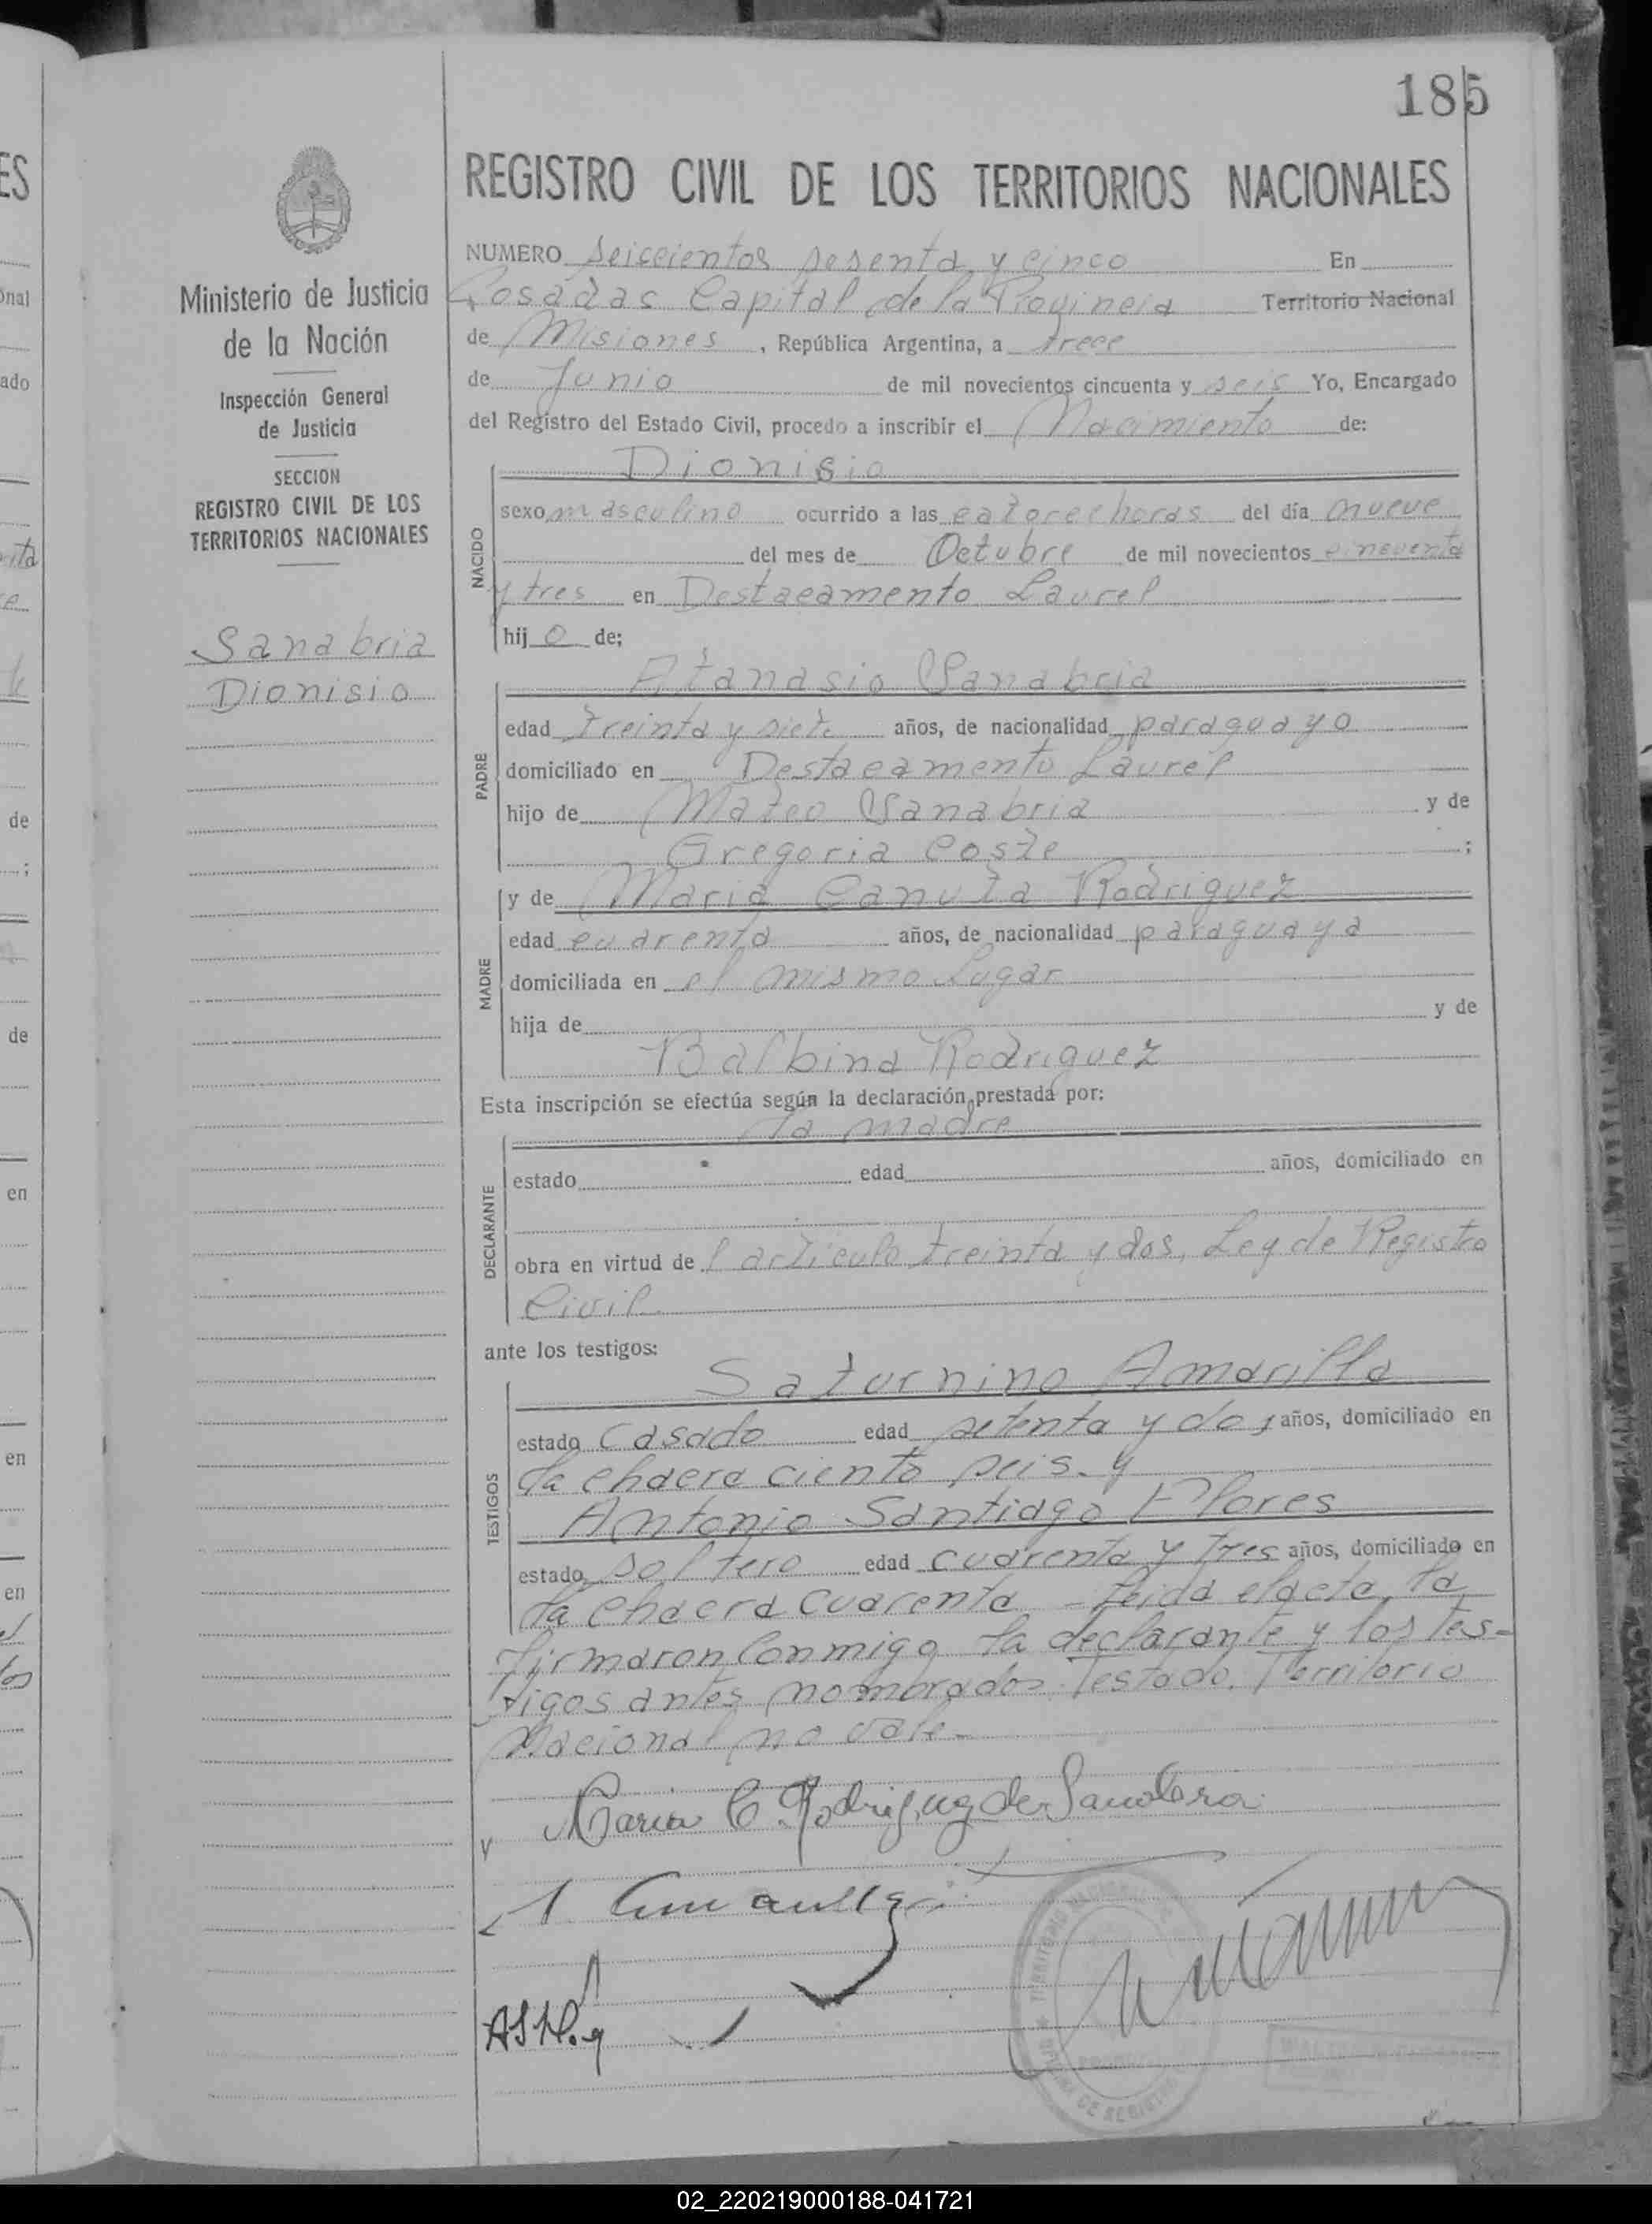 185
REGISTRO CIVIL DE LOS TERRITORIOS NACIONALES
Ministerio de Justicia
de la Nación
Inspección General
de Justicia
SECCION
REGISTRO CIVIL DE LOS
TERRITORIOS NACIONALES
Sanabria
Dionisio
NUMERO seiscientos sesenta y cinco En
Posadas Capital de la Provincia Territorio Nacional
de Misiones, República Argentina, a trece
de Junio de mil novecientos cincuenta y seis Yo, Encargado
del Registro del Estado Civil, procedo a inscribir el Nacimiento de:
NACIDO
Dionisio
sexo masculino ocurrido a las catorce horas del día nueve
del mes de Octubre de mil novecientos cincuenta
y tres en Destacamento Laurel
hijo de;
PADRE
Atanasio Sanabria
edad treinta y siete años, de nacionalidad paraguayo
domiciliado en Destacamento Laurel
hijo de Mateo Sanabria y de
Gregoria ;
MADRE
y de Maria Canuta Rodriguez
edad cuarenta años, de nacionalidad paraguaya
domiciliada en el mismo Lugar
hija de y de
Balbina Rodriguez
Esta inscripción se efectúa según la declaración prestada por:
DECLARANTE
la madre
estado edad años, domiciliado en
obra en virtud del articulo treinta y dos, Ley de Registro
Civil.
ante los testigos:
TESTIGOS
Saturnino Amarilla
estado casado edad setenta y dos años, domiciliado en
la chacra ciento seis. y
Antonio Santiago Flores
estado soltero edad cuarenta y tres años, domiciliado en
la chacra cuarenta - Leida el acta, la
firmaron conmigo la declarante y los tes-
tigos antes nombrados. Testado. Territorio
Nacional no vale-
Maria C. Rodriguez de Sanabria
02_220219000188-041721